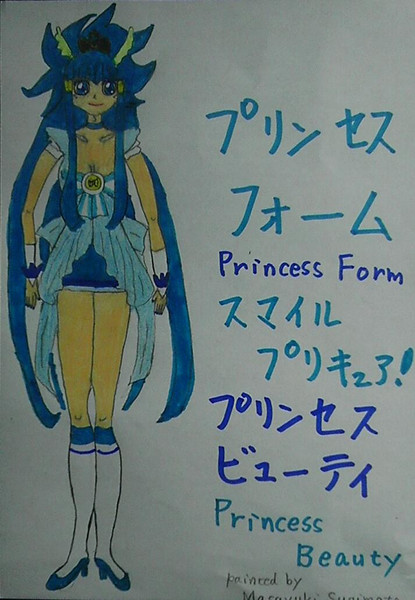 プリンセス
フォーム
Princess Form
スマイル
プリキュア!
プリンセス
ビューティ
Princess
Beauty
painted by
Masayuki Sugimoto